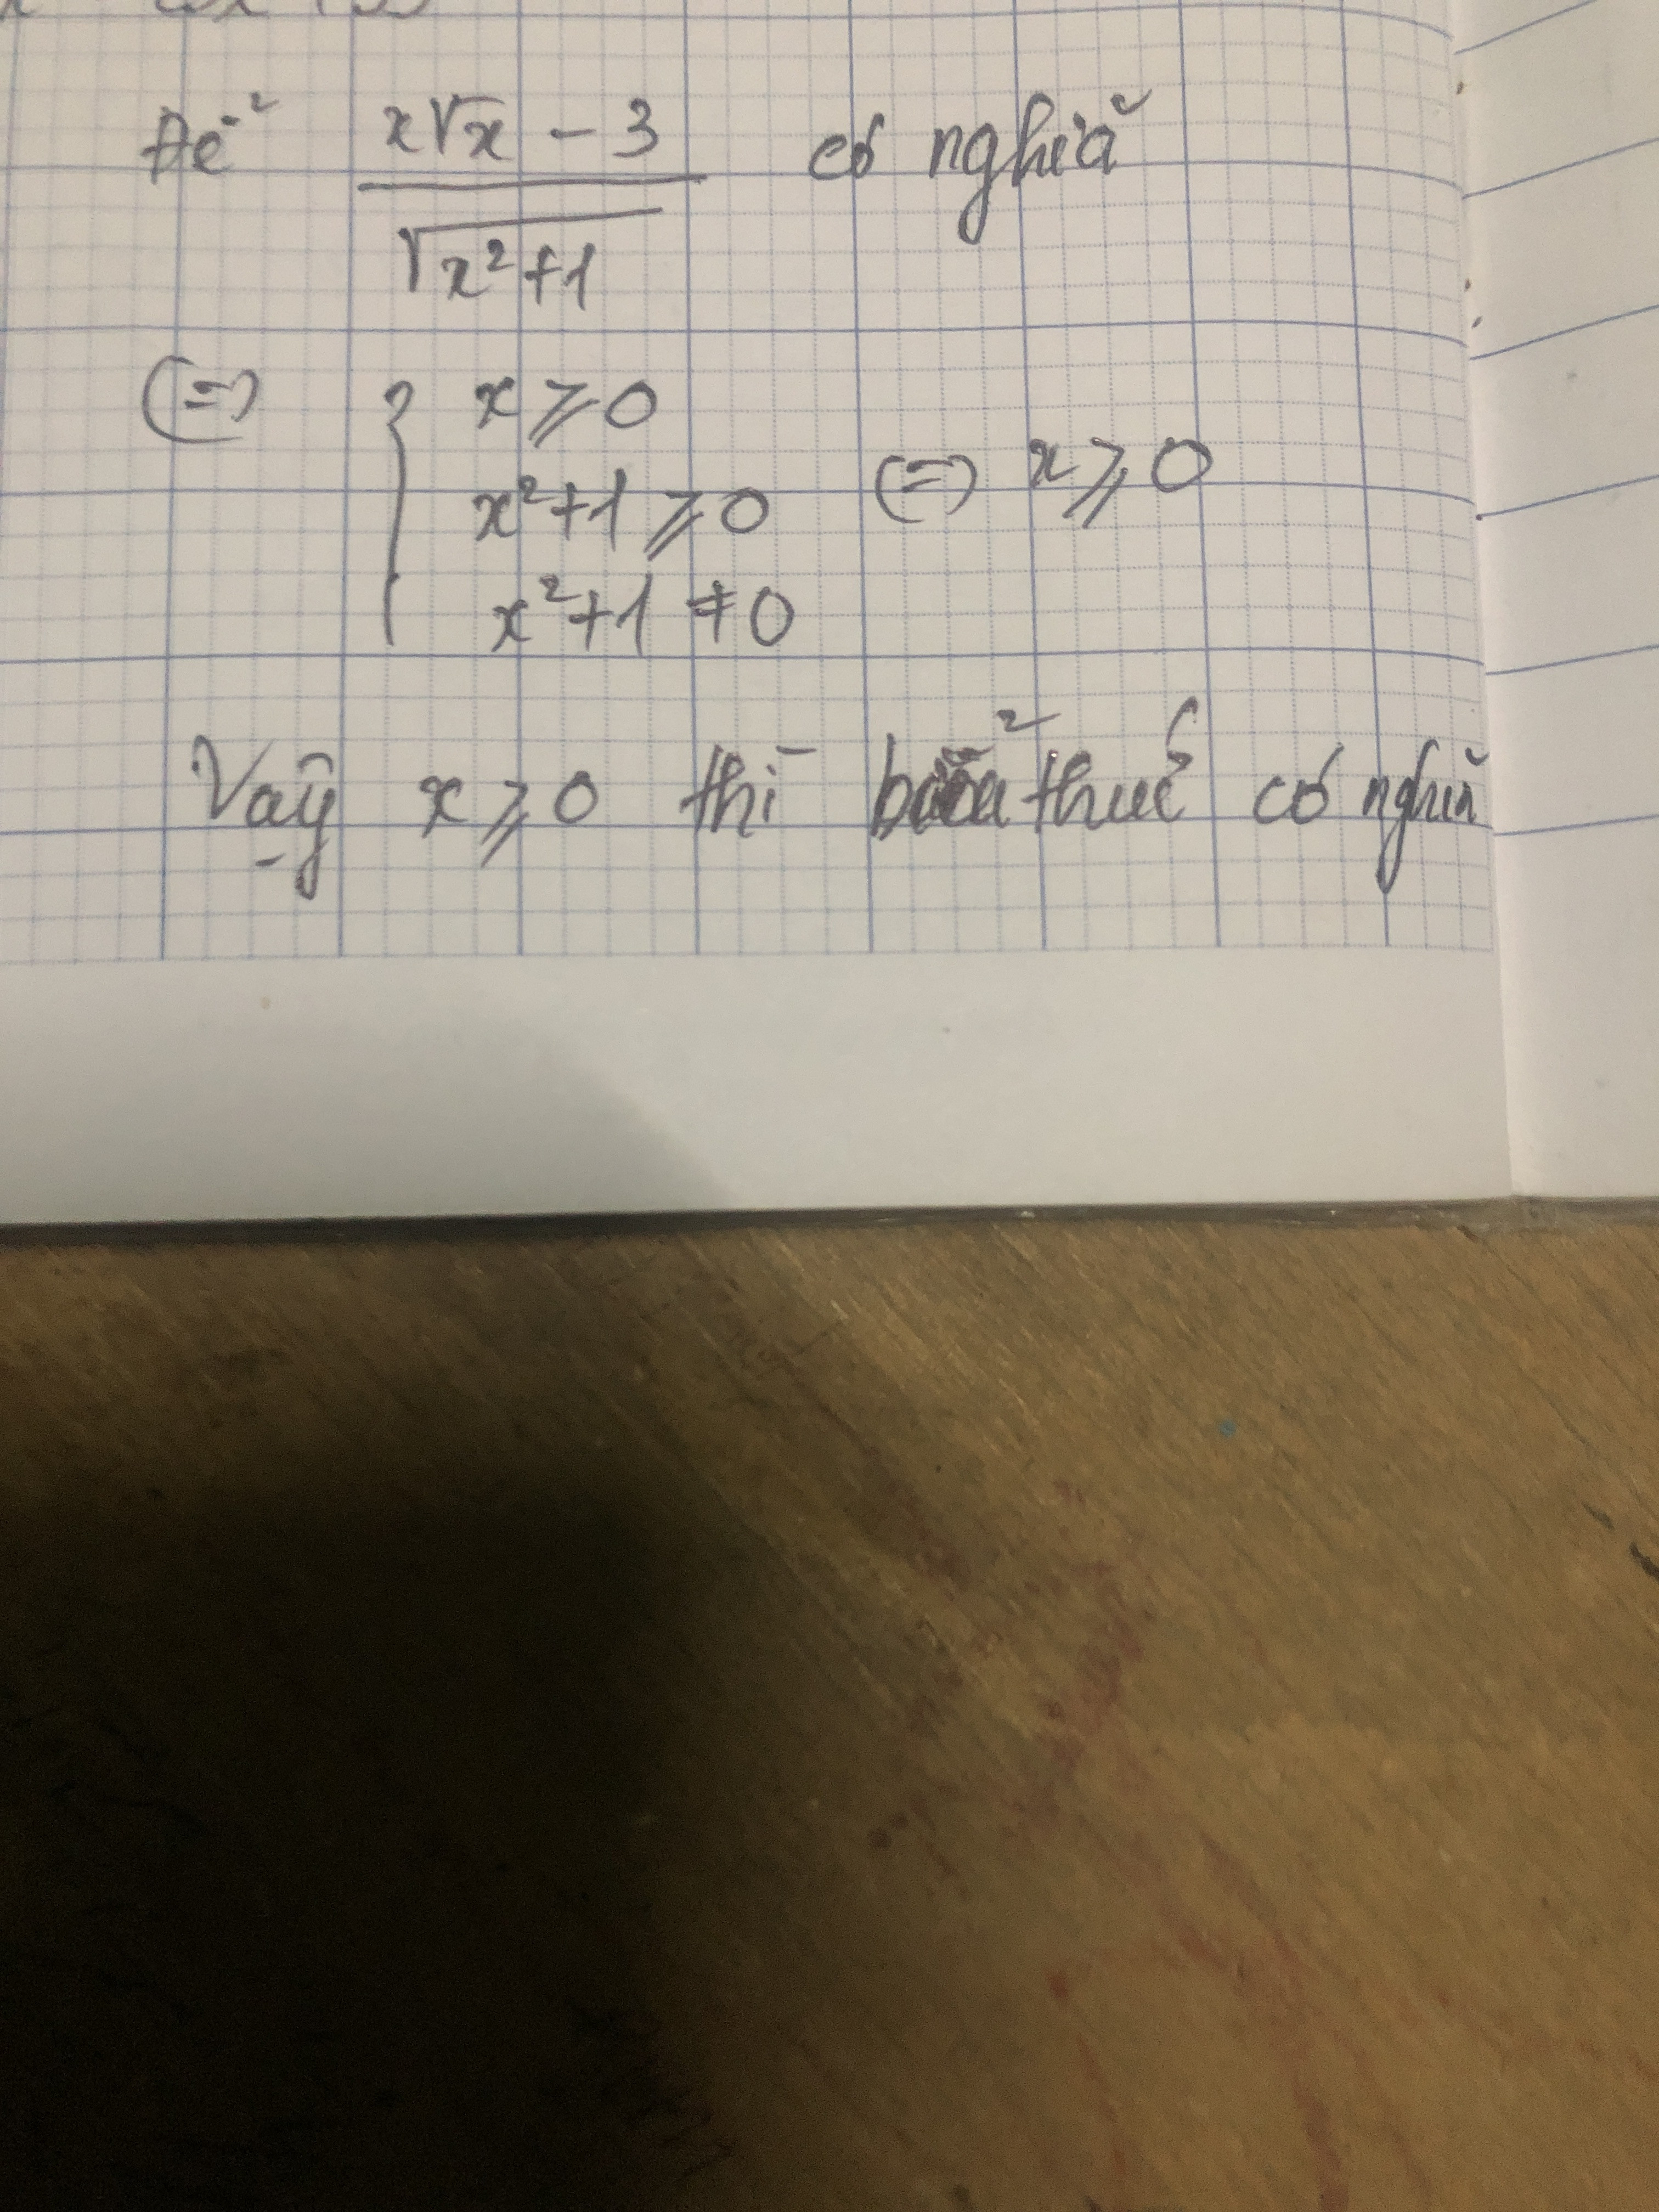 Để (x√x - 3)/(√(x²+1)) có nghĩa
(=) { x ⩾ 0
x²+1 ⩾ 0 (=) x ⩾ 0
x²+1 ≠ 0
Vậy x ⩾ 0 thì thức có nghĩa